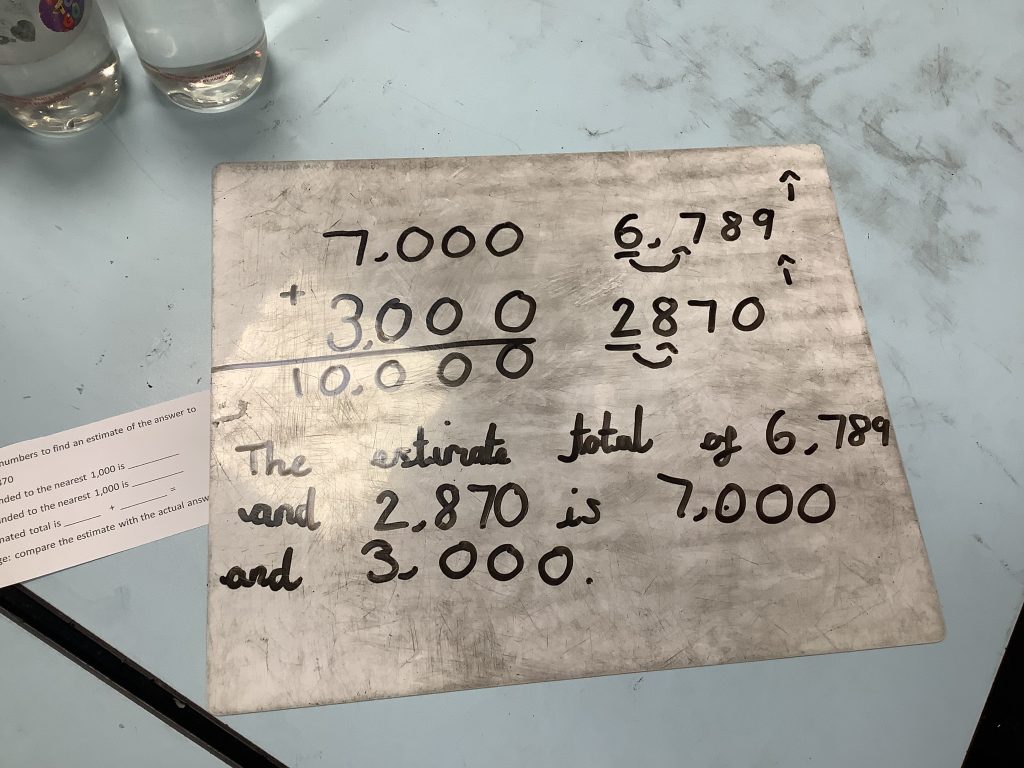 7,000 6,789
+ 3,000 2870
10,000
The estimate total of 6,789
and 2,870 is 7,000
and 3,000.
numbers to find an estimate of the answer to
870
nded to the nearest 1,000 is ________
nded to the nearest 1,000 is ________
mated total is _____ + _______ =
ge: compare the estimate with the actual answ